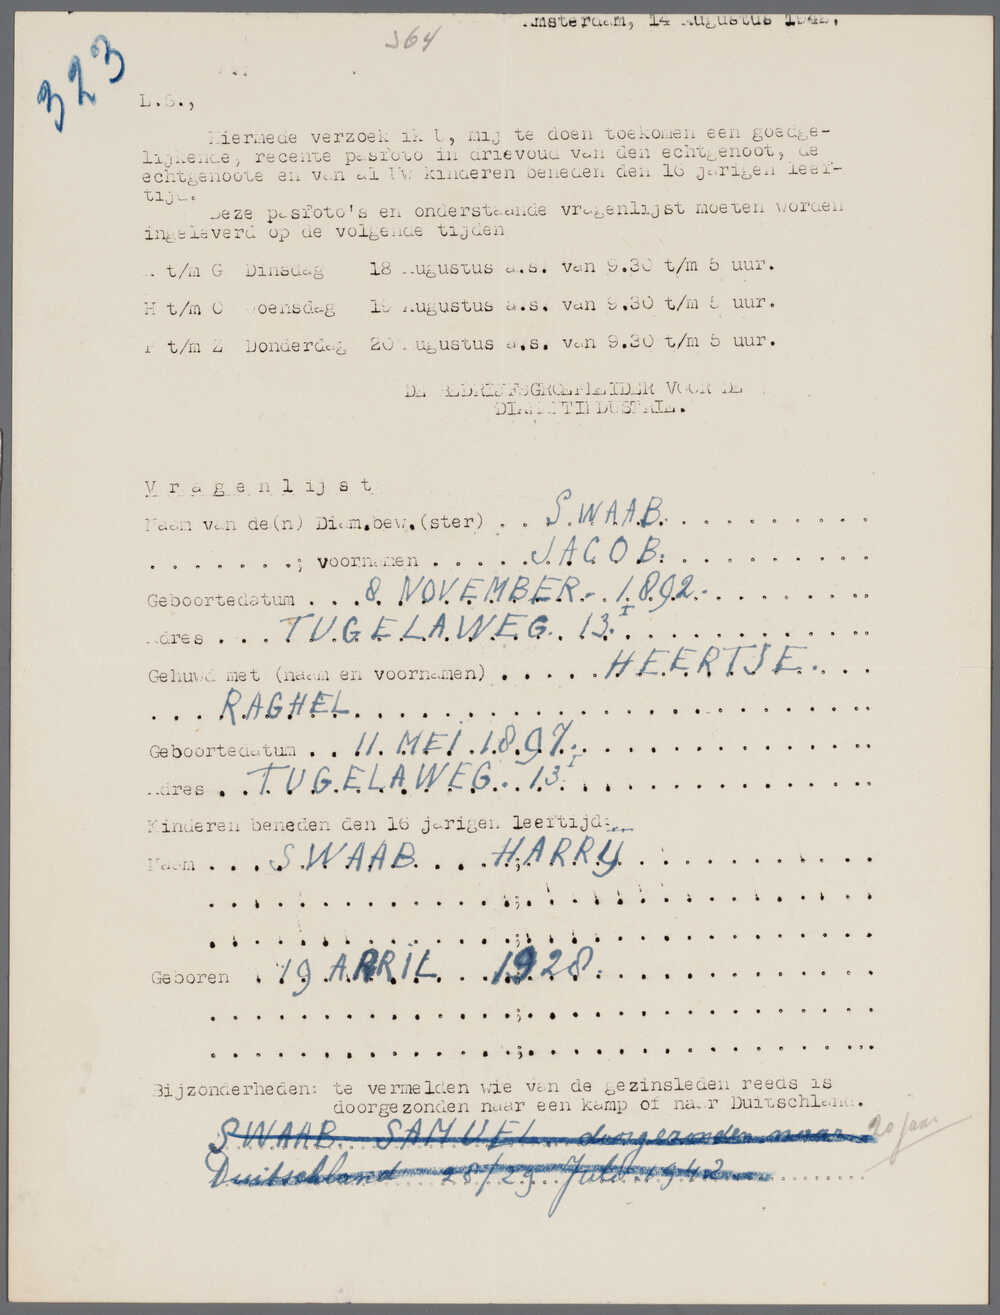 Amsterdam, 14 Augustus 1942.
364
323
L.S.,
Hiermede verzoek ik U, mij te doen toekomen een goedge-
lijkende, recente pasfoto in drievoud van den echtgenoot, de
echtgenoote en van al Uw kinderen beneden den 16 jarigen leef-
tijd.
Deze pasfoto's en onderstaande vragenlijst moeten worden
ingeleverd op de volgende tijden
A t/m G Dinsdag 18 Augustus a.s. van 9.30 t/m 5 uur.
H t/m O Woensdag 19 Augustus a.s. van 9.30 t/m 5 uur.
P t/m Z Donderdag 20 Augustus a.s. van 9.30 t/m 5 uur.
DE BEDRIJFSGROEPLEIDER VOOR DE
DIAMANTINDUSTRIE.
Vragenlijst
Naam van de(n) Diam.bew.(ster) . . SWAAB. . . . . . . . . . .
. . . . . . . .; voornamen . . . . . . JACOB. . . . . . . . . . .
Geboortedatum . . . 8 NOVEMBER.- 1892.- . . . . . . . .
Adres . . . TUGELAWEG. 13.I . . . . . . . . . . . . .
Gehuwd met (naam en voornamen) . . . . . HEERTJE. . . .
. . . RACHEL. . . . . . . . . . . . . . . . . . . . . . . . . .
Geboortedatum . . 11 MEI 1897. . . . . . . . . . . . . . .
Adres . . TUGELAWEG. 13.I . . . . . . . . . . . . . . .
Kinderen beneden den 16 jarigen leeftijd:
Naam . . . SWAAB . . . ; HARRY . . . . . . . . . . . . .
. . . . . . . . . . . . . . . ; . . . . . . . . . . . . . . . .
. . . . . . . . . . . . . . . ; . . . . . . . . . . . . . . . .
Geboren . 19 APRIL . . 1928. . . . . . . . . . . . . .
. . . . . . . . . . . . . . . ; . . . . . . . . . . . . . . . .
. . . . . . . . . . . . . . . ; . . . . . . . . . . . . . . . .
Bijzonderheden: te vermelden wie van de gezinsleden reeds is
doorgezonden naar een kamp of naar Duitschland.
SWAAB SAMUEL doorgezonden naar 20 jaar
Duitschland 28/29 Juli 1942